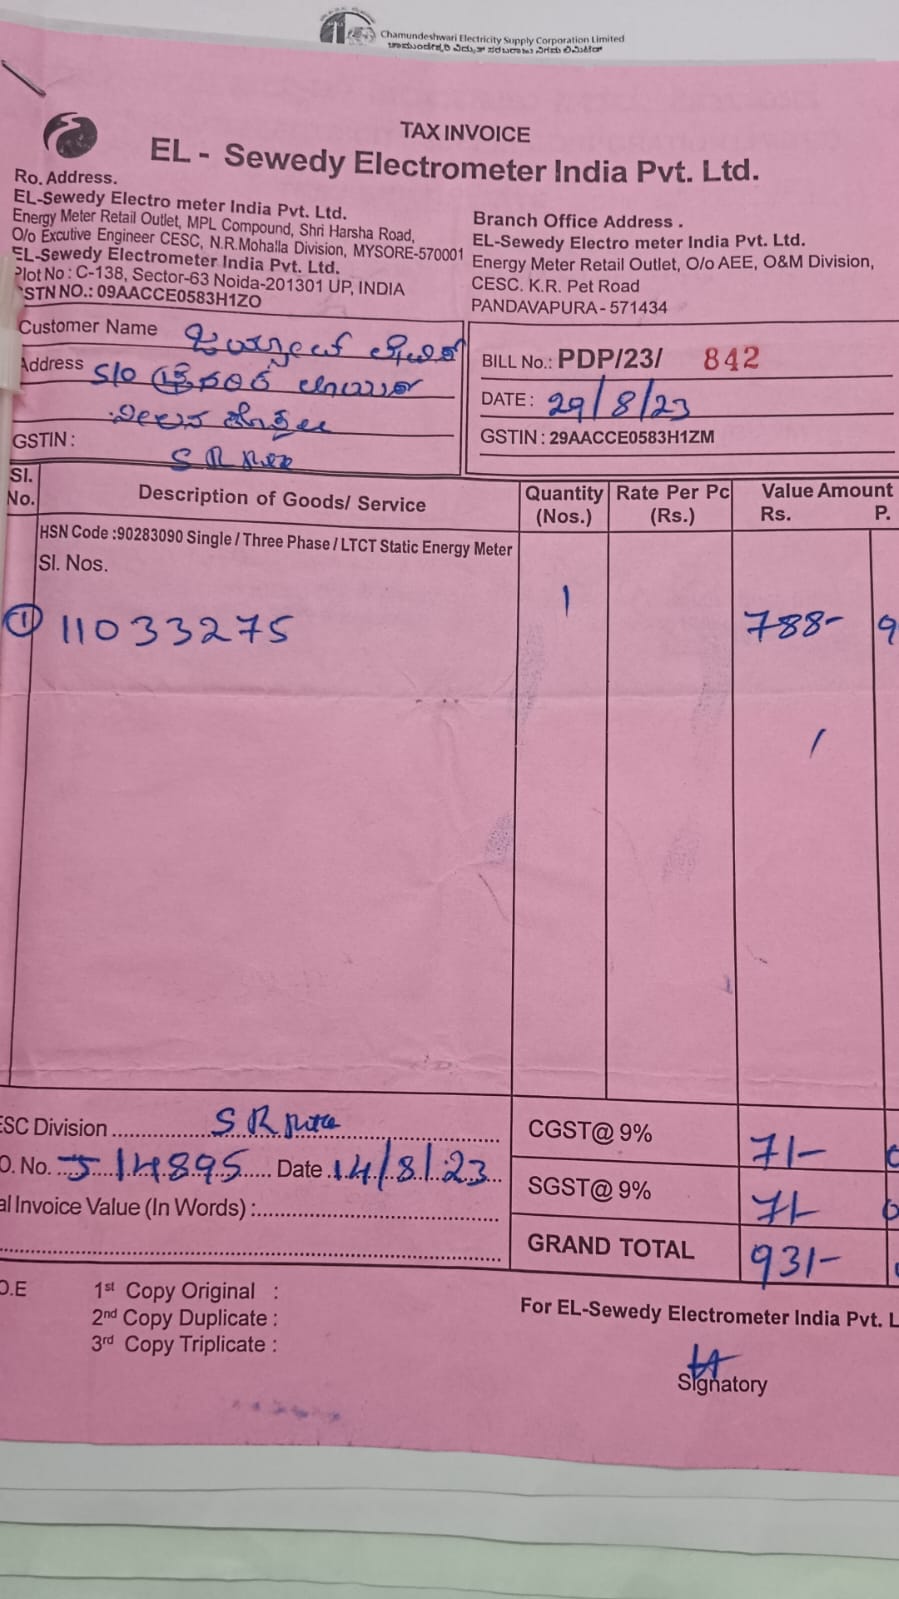 Chamundeshwari Electricity Supply Corporation Limited
TAX INVOICE
EL - Sewedy Electrometer India Pvt. Ltd.
Ro. Address.
EL-Sewedy Electro meter India Pvt. Ltd.
Energy Meter Retail Outlet, MPL Compound, Shri Harsha Road,
O/o Excutive Engineer CESC, N.R.Mohalla Division, MYSORE-570001
EL-Sewedy Electrometer India Pvt. Ltd.
Plot No : C-138, Sector-63 Noida-201301 UP, INDIA
STN NO.: 09AACCE0583H1ZO
Branch Office Address .
EL-Sewedy Electro meter India Pvt. Ltd.
Energy Meter Retail Outlet, O/o AEE, O&M Division,
CESC. K.R. Pet Road
PANDAVAPURA - 571434
Customer Name
Address S/o
GSTIN :
S R
BILL No.: PDP/23/ 842
DATE : 29/8/23
GSTIN : 29AACCE0583H1ZM
Sl. No. Description of Goods/ Service Quantity (Nos.) Rate Per Pc (Rs.) Value Amount Rs. P.
HSN Code :90283090 Single / Three Phase / LTCT Static Energy Meter
Sl. Nos.
① 11033275 1 788- 9
ESC Division S R
O. No. 514895 Date 14/8/23
al Invoice Value (In Words) :
CGST@ 9% 71- 0
SGST@ 9% 71- 0
GRAND TOTAL 931-
O.E
1st Copy Original :
2nd Copy Duplicate :
3rd Copy Triplicate :
For EL-Sewedy Electrometer India Pvt. L
Signatory